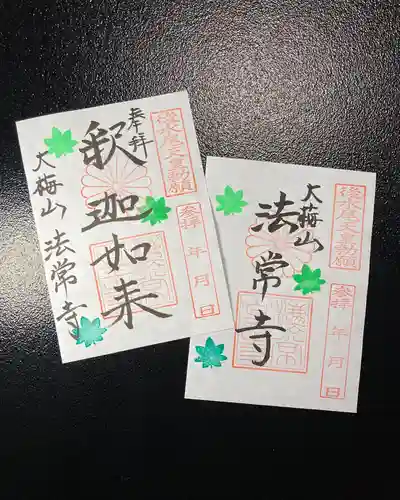 後水尾天皇勅願
奉拝
釈迦如来
参拝 年 月 日
大梅山 法常寺
後水尾天皇勅願
大梅山
法常寺
参拝 年 月 日